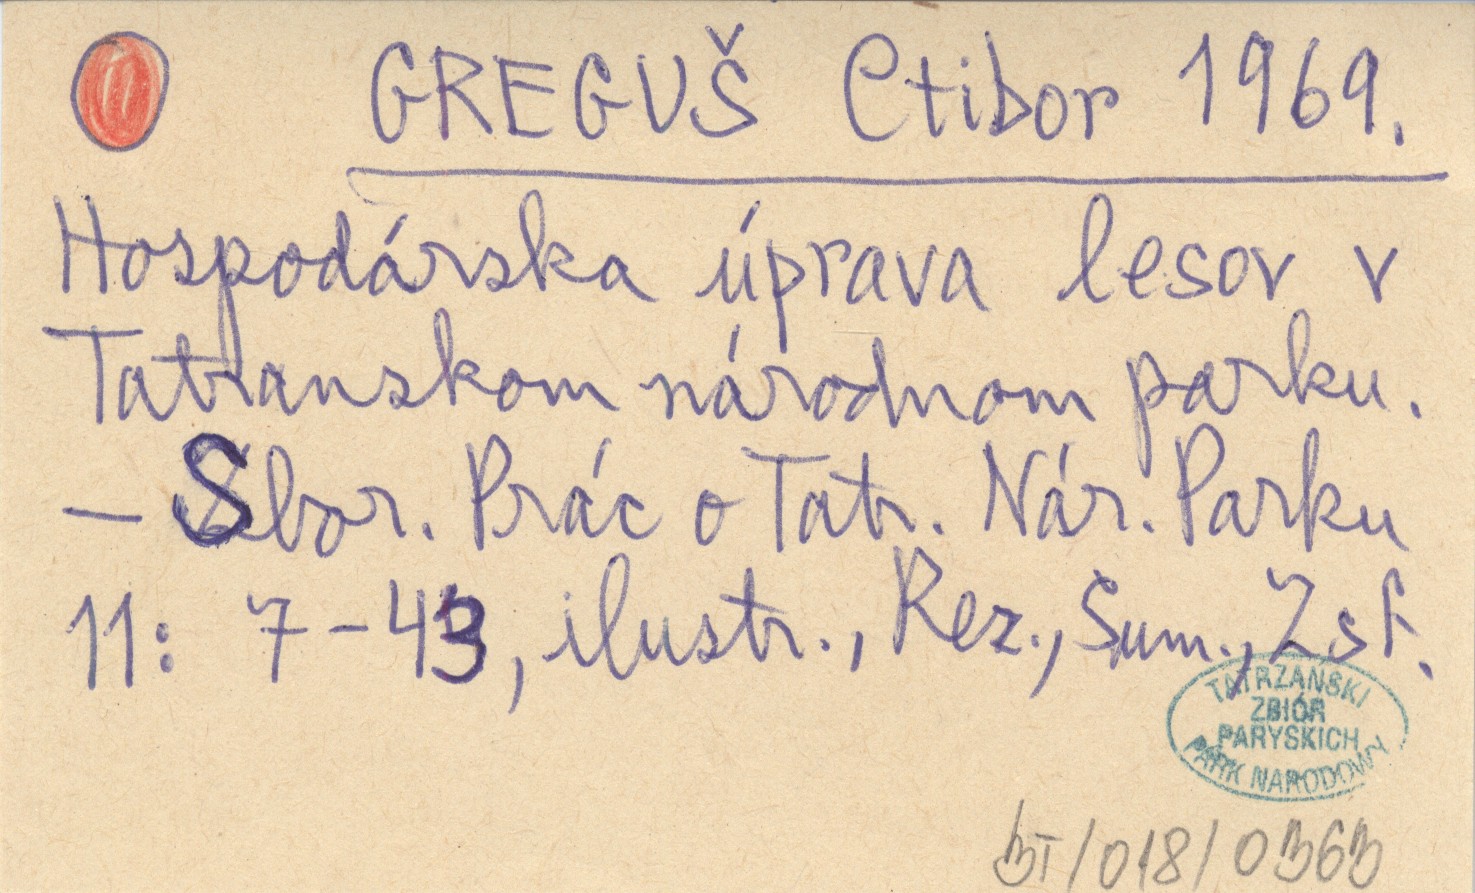 GREGUŠ Ctibor 1969.
Hospodárska úprava lesov v
Tatranskom národnom parku.
— Sbor. Prác o Tatr. Nár. Parku
11: 7-43, ilustr., Rez., Sum., Zsf.
TATRZAŃSKI
ZBIÓR
PARYSKICH
PARK NARODOWY
BT/018/0363